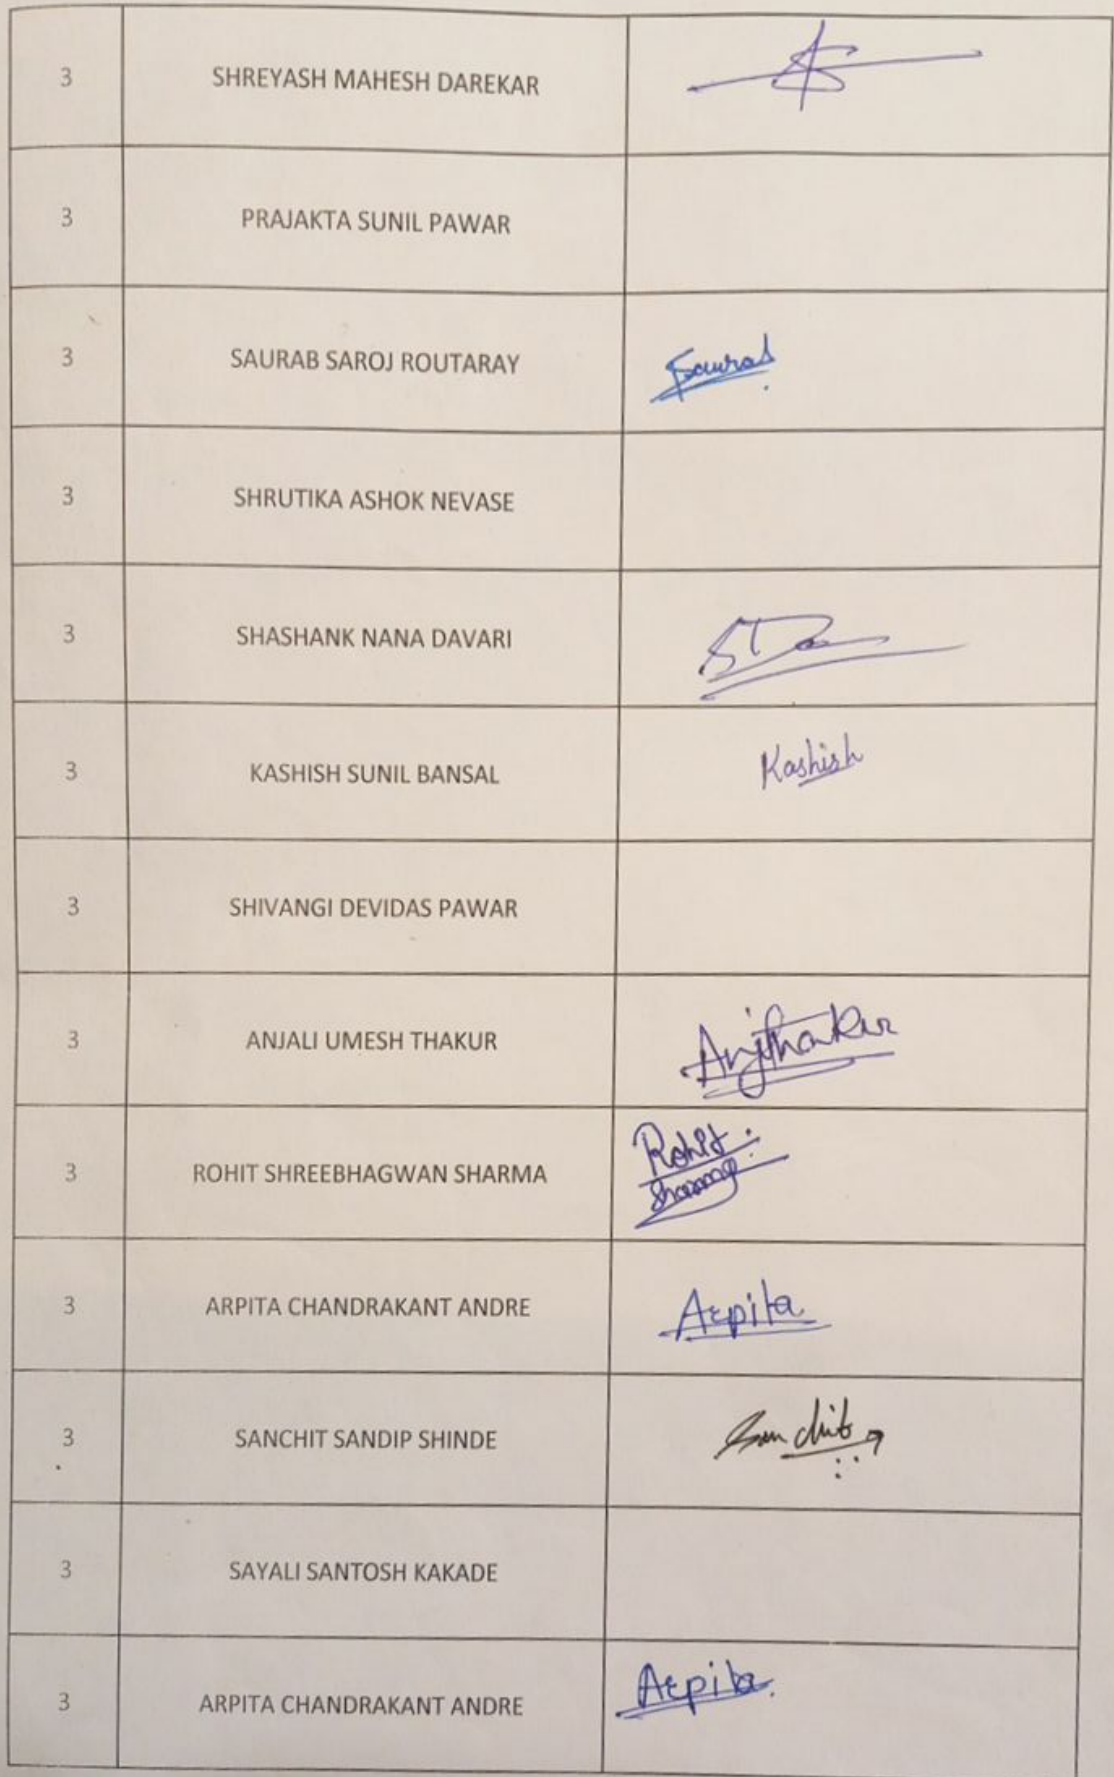 3 SHREYASH MAHESH DAREKAR
3 PRAJAKTA SUNIL PAWAR
3 SAURAB SAROJ ROUTARAY Saurab
3 SHRUTIKA ASHOK NEVASE
3 SHASHANK NANA DAVARI
3 KASHISH SUNIL BANSAL Kashish
3 SHIVANGI DEVIDAS PAWAR
3 ANJALI UMESH THAKUR Anjthakur
3 ROHIT SHREEBHAGWAN SHARMA Rohit
Sharma
3 ARPITA CHANDRAKANT ANDRE Arpita
3 SANCHIT SANDIP SHINDE Sanchit
3 SAYALI SANTOSH KAKADE
3 ARPITA CHANDRAKANT ANDRE Arpita